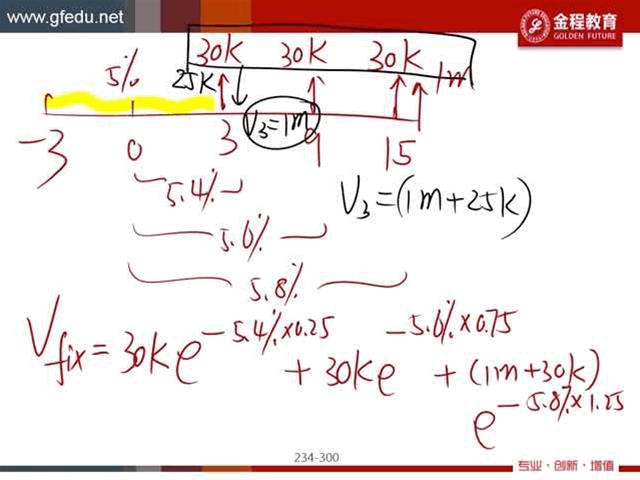 www.gfedu.net
金程教育
GOLDEN FUTURE
30K 30K 30K
5% 25K 1m
V3=1m
-3 0 3 9 15
5.4%
V3=(1m+25K)
5.6%
5.8%
Vfix=30Ke^-5.4%×0.25 + 30Ke^-5.6%×0.75 + (1m+30K)
e^-5.8%×1.25
234-300
专业·创新·增值